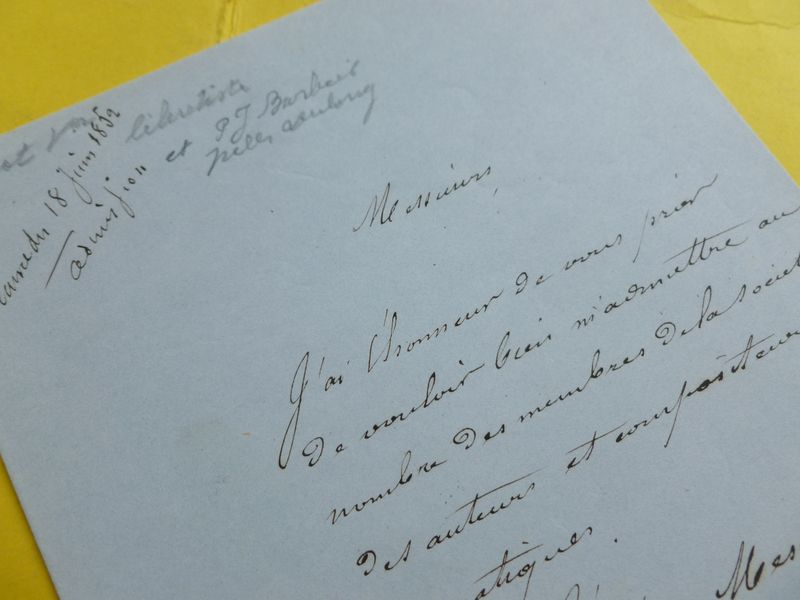 librettiste
et P J Barbier
samedi 18 juin 1852
admission
Messieurs,
J'ai l'honneur de vous prier
de vouloir bien m'admettre au
nombre des membres de la societ
des auteurs et compositeur
atiques.
Mes